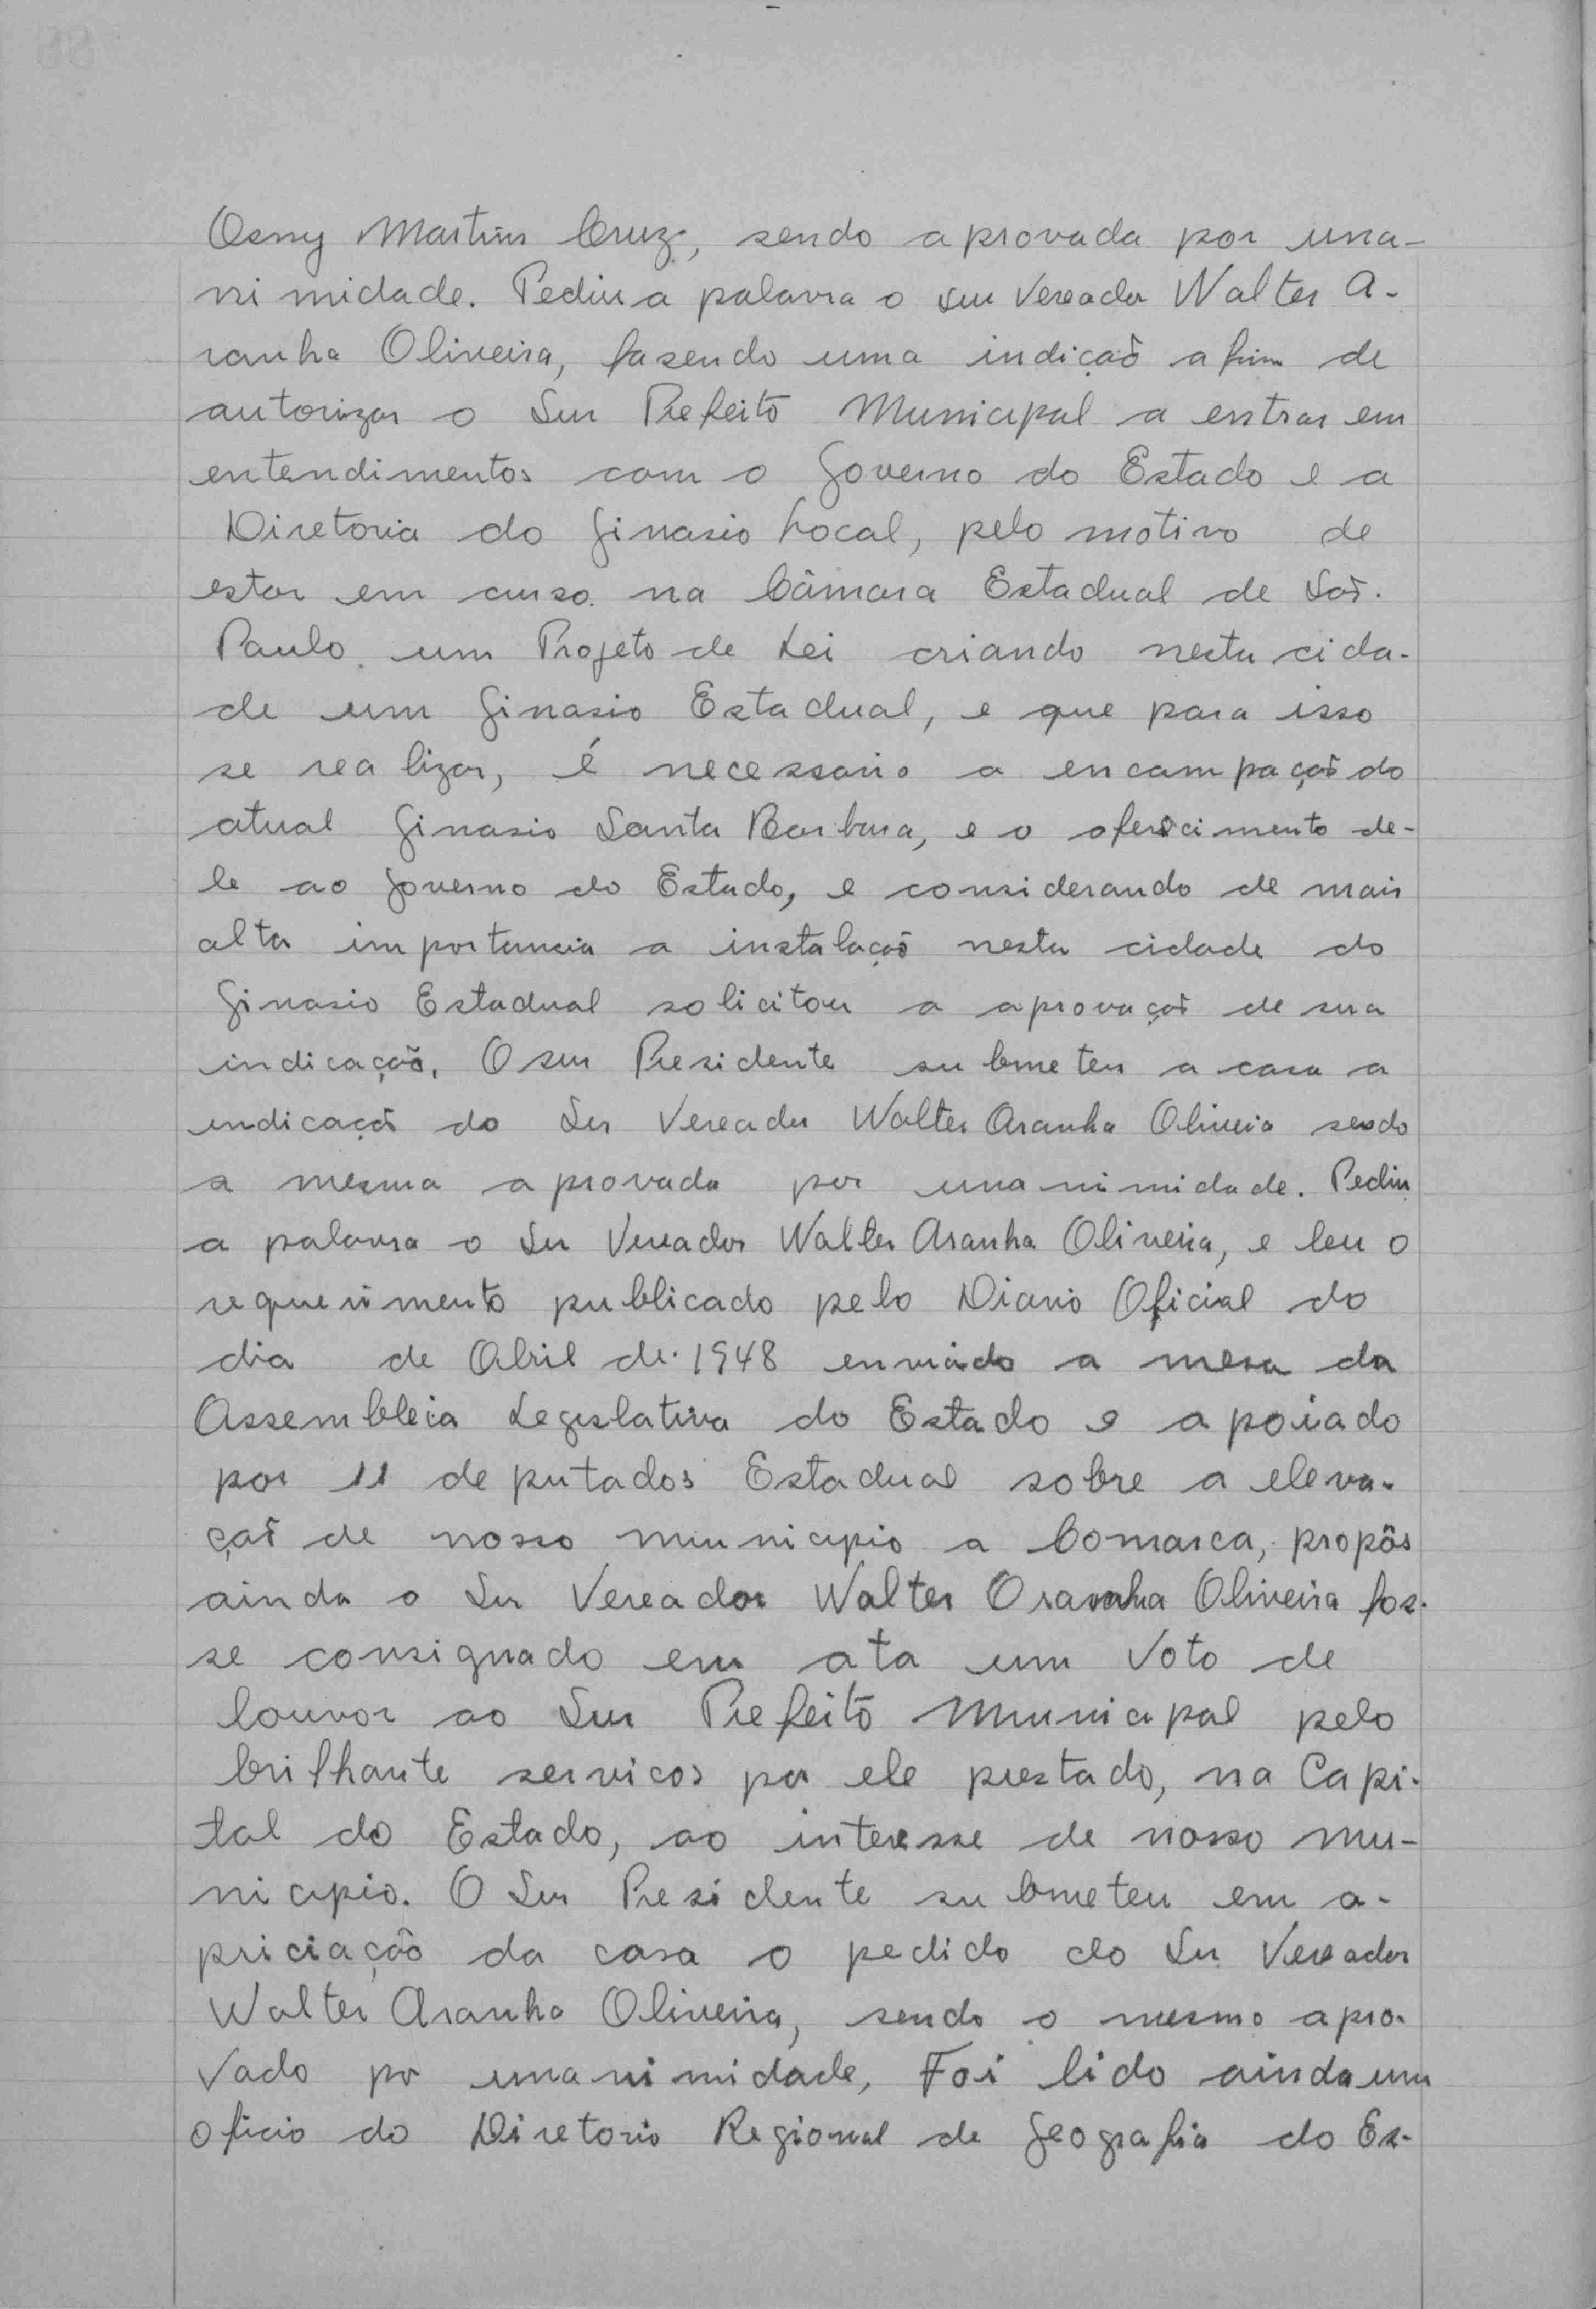 Osny Martins Cruz, sendo aprovada por una-
nimidade. Pediu a palavra o Snr Vereador Walter A-
ranha Oliveira, fasendo uma indição a fim de
autorizar o Snr Prefeito Municipal a entrar em
entendimentos com o Governo do Estado e a
Diretoria do Ginasio Local, pelo motivo de
estar em curso na Câmara Estadual de São
Paulo um Projeto de Lei criando nesta cida-
de um Ginasio Estadual, e que para isso
se realizar, é necessario a encampação do
atual Ginasio Santa Barbara, e o oferecimento de-
le ao Governo do Estado, e considerando de mais
alta importancia a instalação nesta cidade do
Ginasio Estadual solicitou a aprovação de sua
indicação. O snr Presidente submeteu a casa a
indicação do Snr Vereador Walter Aranha Oliveira sendo
a mesma aprovada por unanimidade. Pediu
a palavra o Snr Vereador Walter Aranha Oliveira, e leu o
requerimento publicado pelo Diario Oficial do
dia de Abril de 1948 enviado a mesa da
Assembleia Legislativa do Estado e apoiado
por 11 deputados Estadual sobre a eleva-
ção de nosso municipio a Comarca, propôs
ainda o Snr Vereador Walter Aranha Oliveira fos-
se consignado em ata um voto de
louvor ao Snr Prefeito Municipal pelo
brilhante servicos por ele prestado, na Capi-
tal do Estado, ao interesse de nosso mu-
nicipio. O Snr Presidente submeteu em a-
priciação da casa o pedido do Snr Vereador
Walter Aranha Oliveira, sendo o mesmo apro-
vado por unanimidade, Foi lido ainda um
oficio do Diretorio Regional de Geografia do Es-